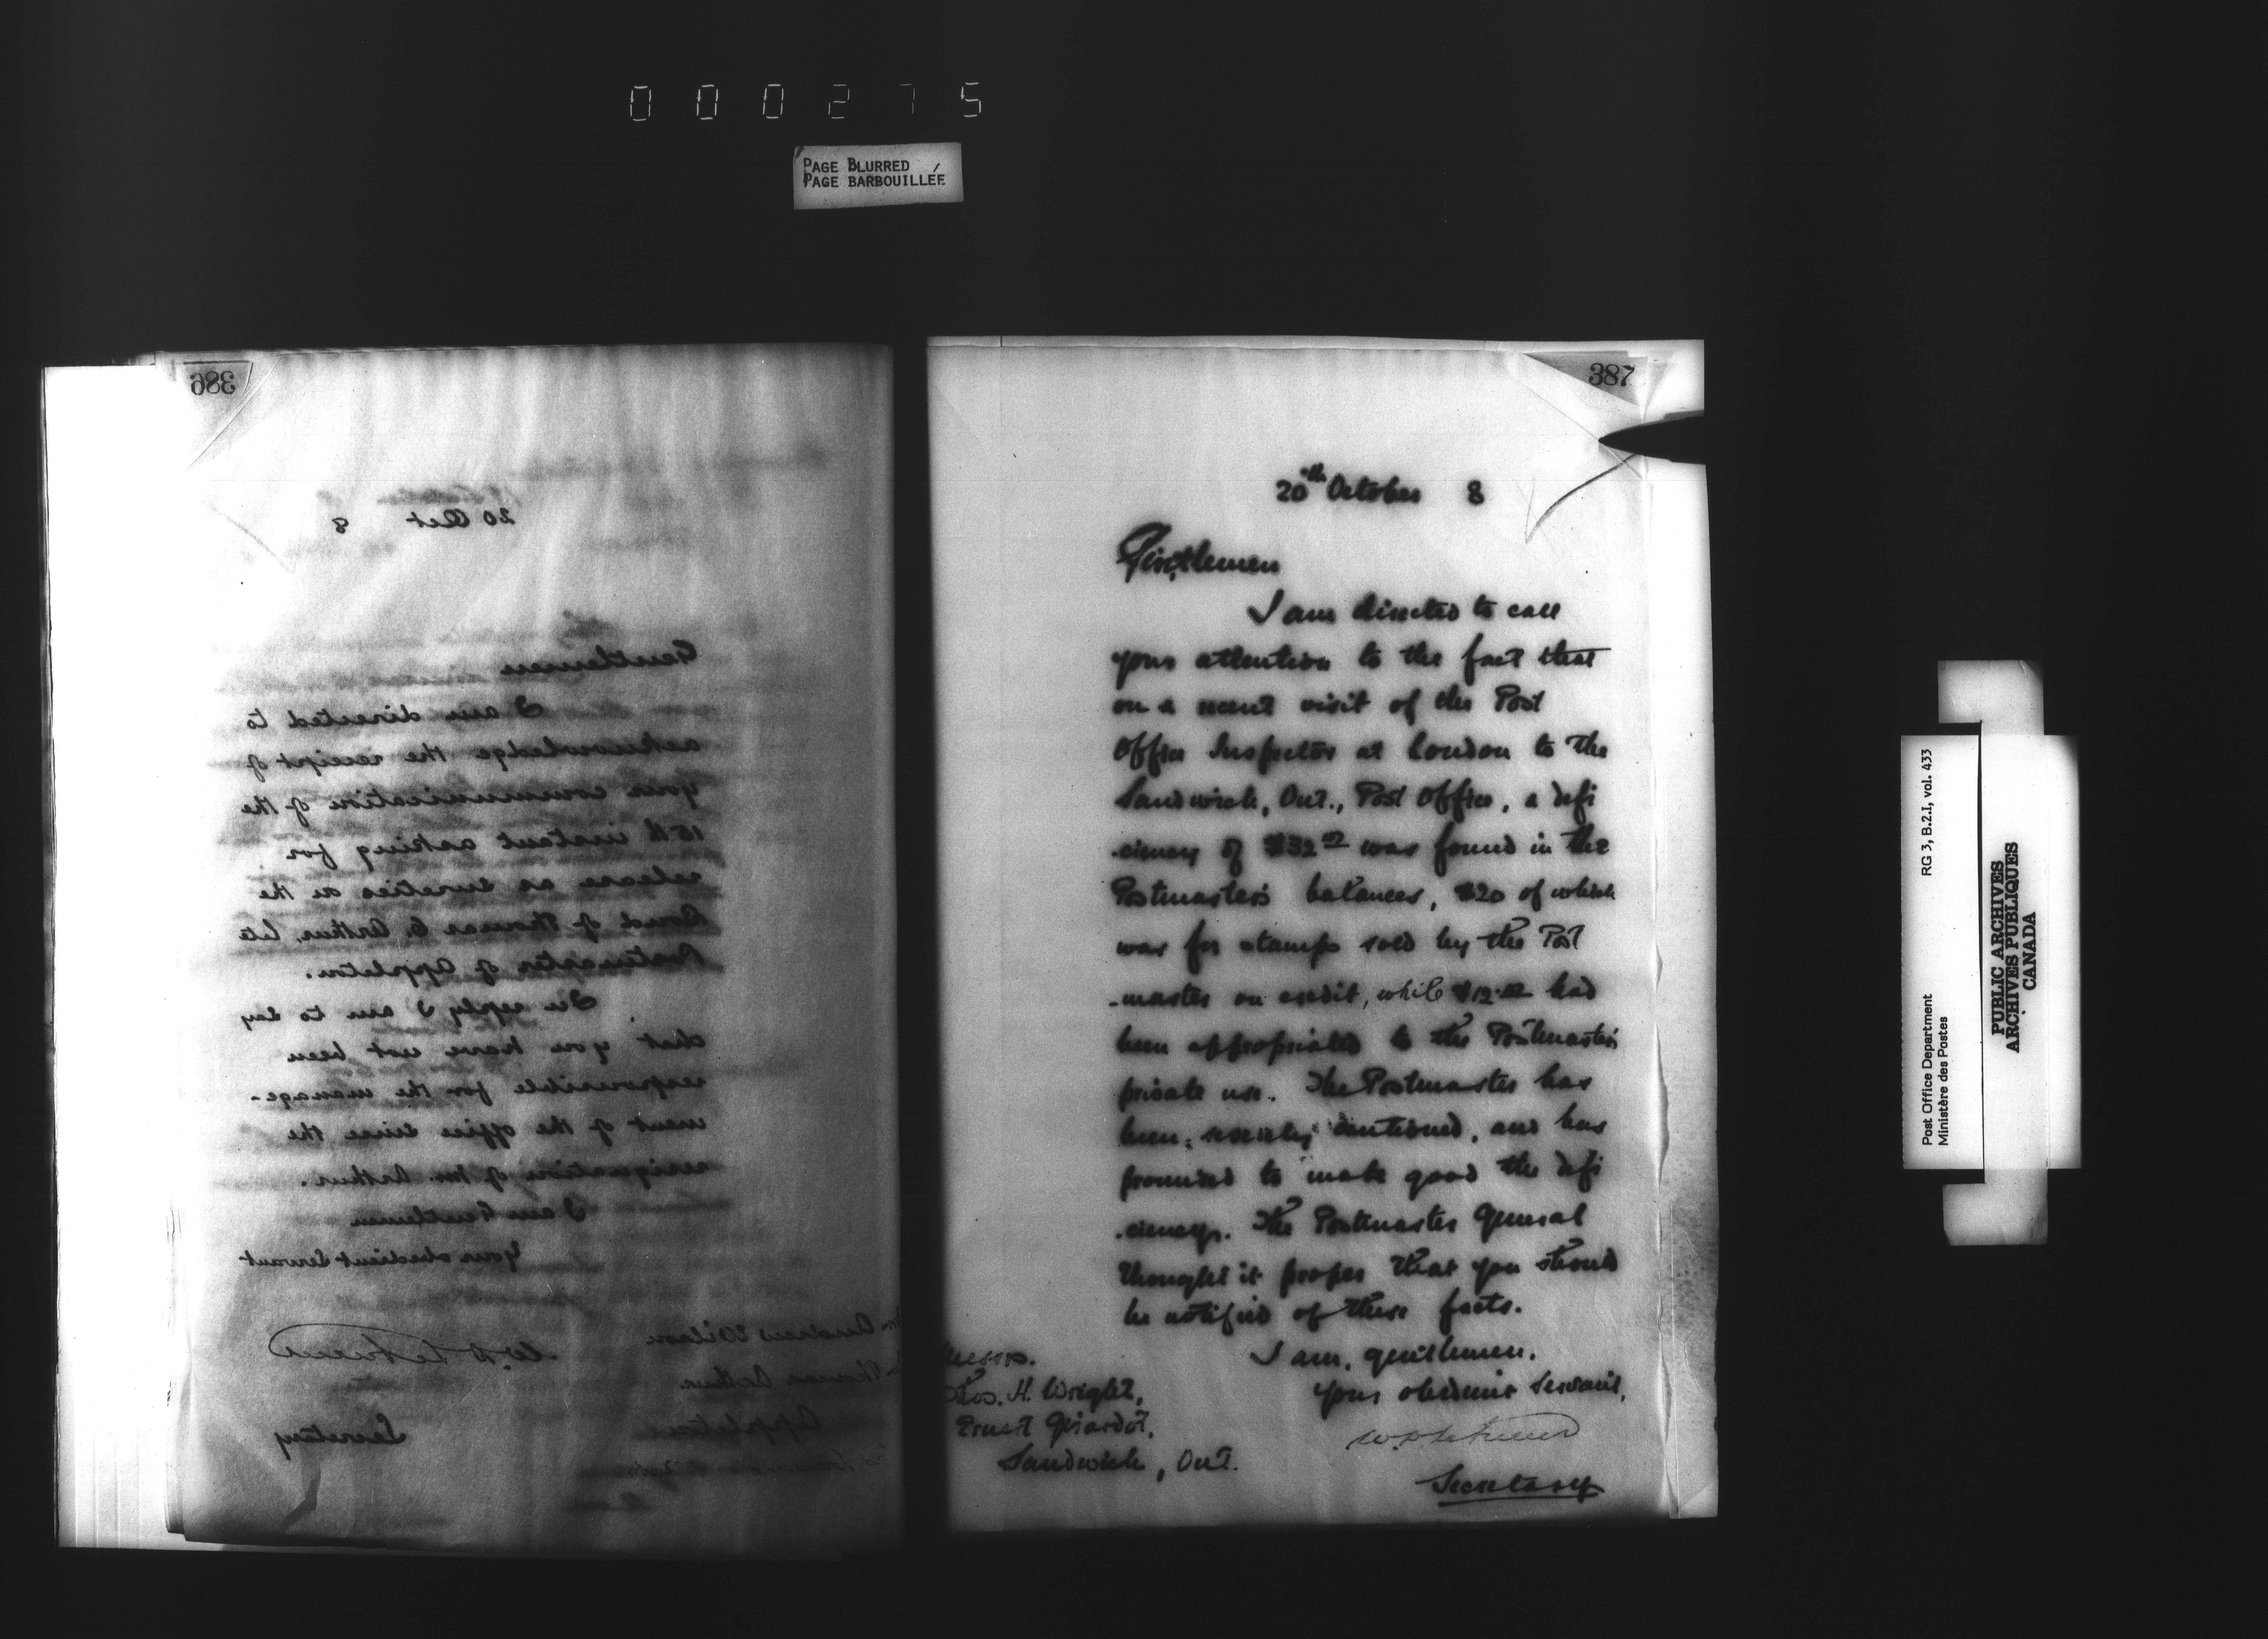 000275
PAGE BLURRED
PAGE BARBOUILLÉE
386
20 Oct 8
Gentlemen
I am directed to
acknowledge the receipt of
your communication of the
15th instant asking for
release as sureties on the
Bond of Thomas C. Arthur, late
Postmaster of Appleton.
In reply I am to say
that you have not been
responsible for the manage-
ment of the office since the
resignation of Mr. Arthur.
I am Gentlemen
Your obedient Servant
Secretary
Andrew Wilson
Thomas Arthur
Appleton
387
20th October 8
Gentlemen
I am directed to call
your attention to the fact that
on a recent visit of the Post
Office Inspector at London to the
Sandwich, Ont., Post Office, a defi
-ciency of $32 was found in the
Postmaster's balances, $20 of which
was for stamps sold by the Post
-master on credit, while $12 had
been appropriated to the Postmaster's
private use. The Postmaster has
been severely cautioned, and has
promised to make good the defi
-ciency. The Postmaster General
thought it proper that you should
be notified of these facts.
I am, gentlemen,
Your obedient Servant,
Secretary
Messrs.
Thos. H. Wright,
Ernest Girardot,
Sandwich, Ont.
Post Office Department RG 3, B.2.I, vol. 433
Ministère des Postes
PUBLIC ARCHIVES
ARCHIVES PUBLIQUES
CANADA